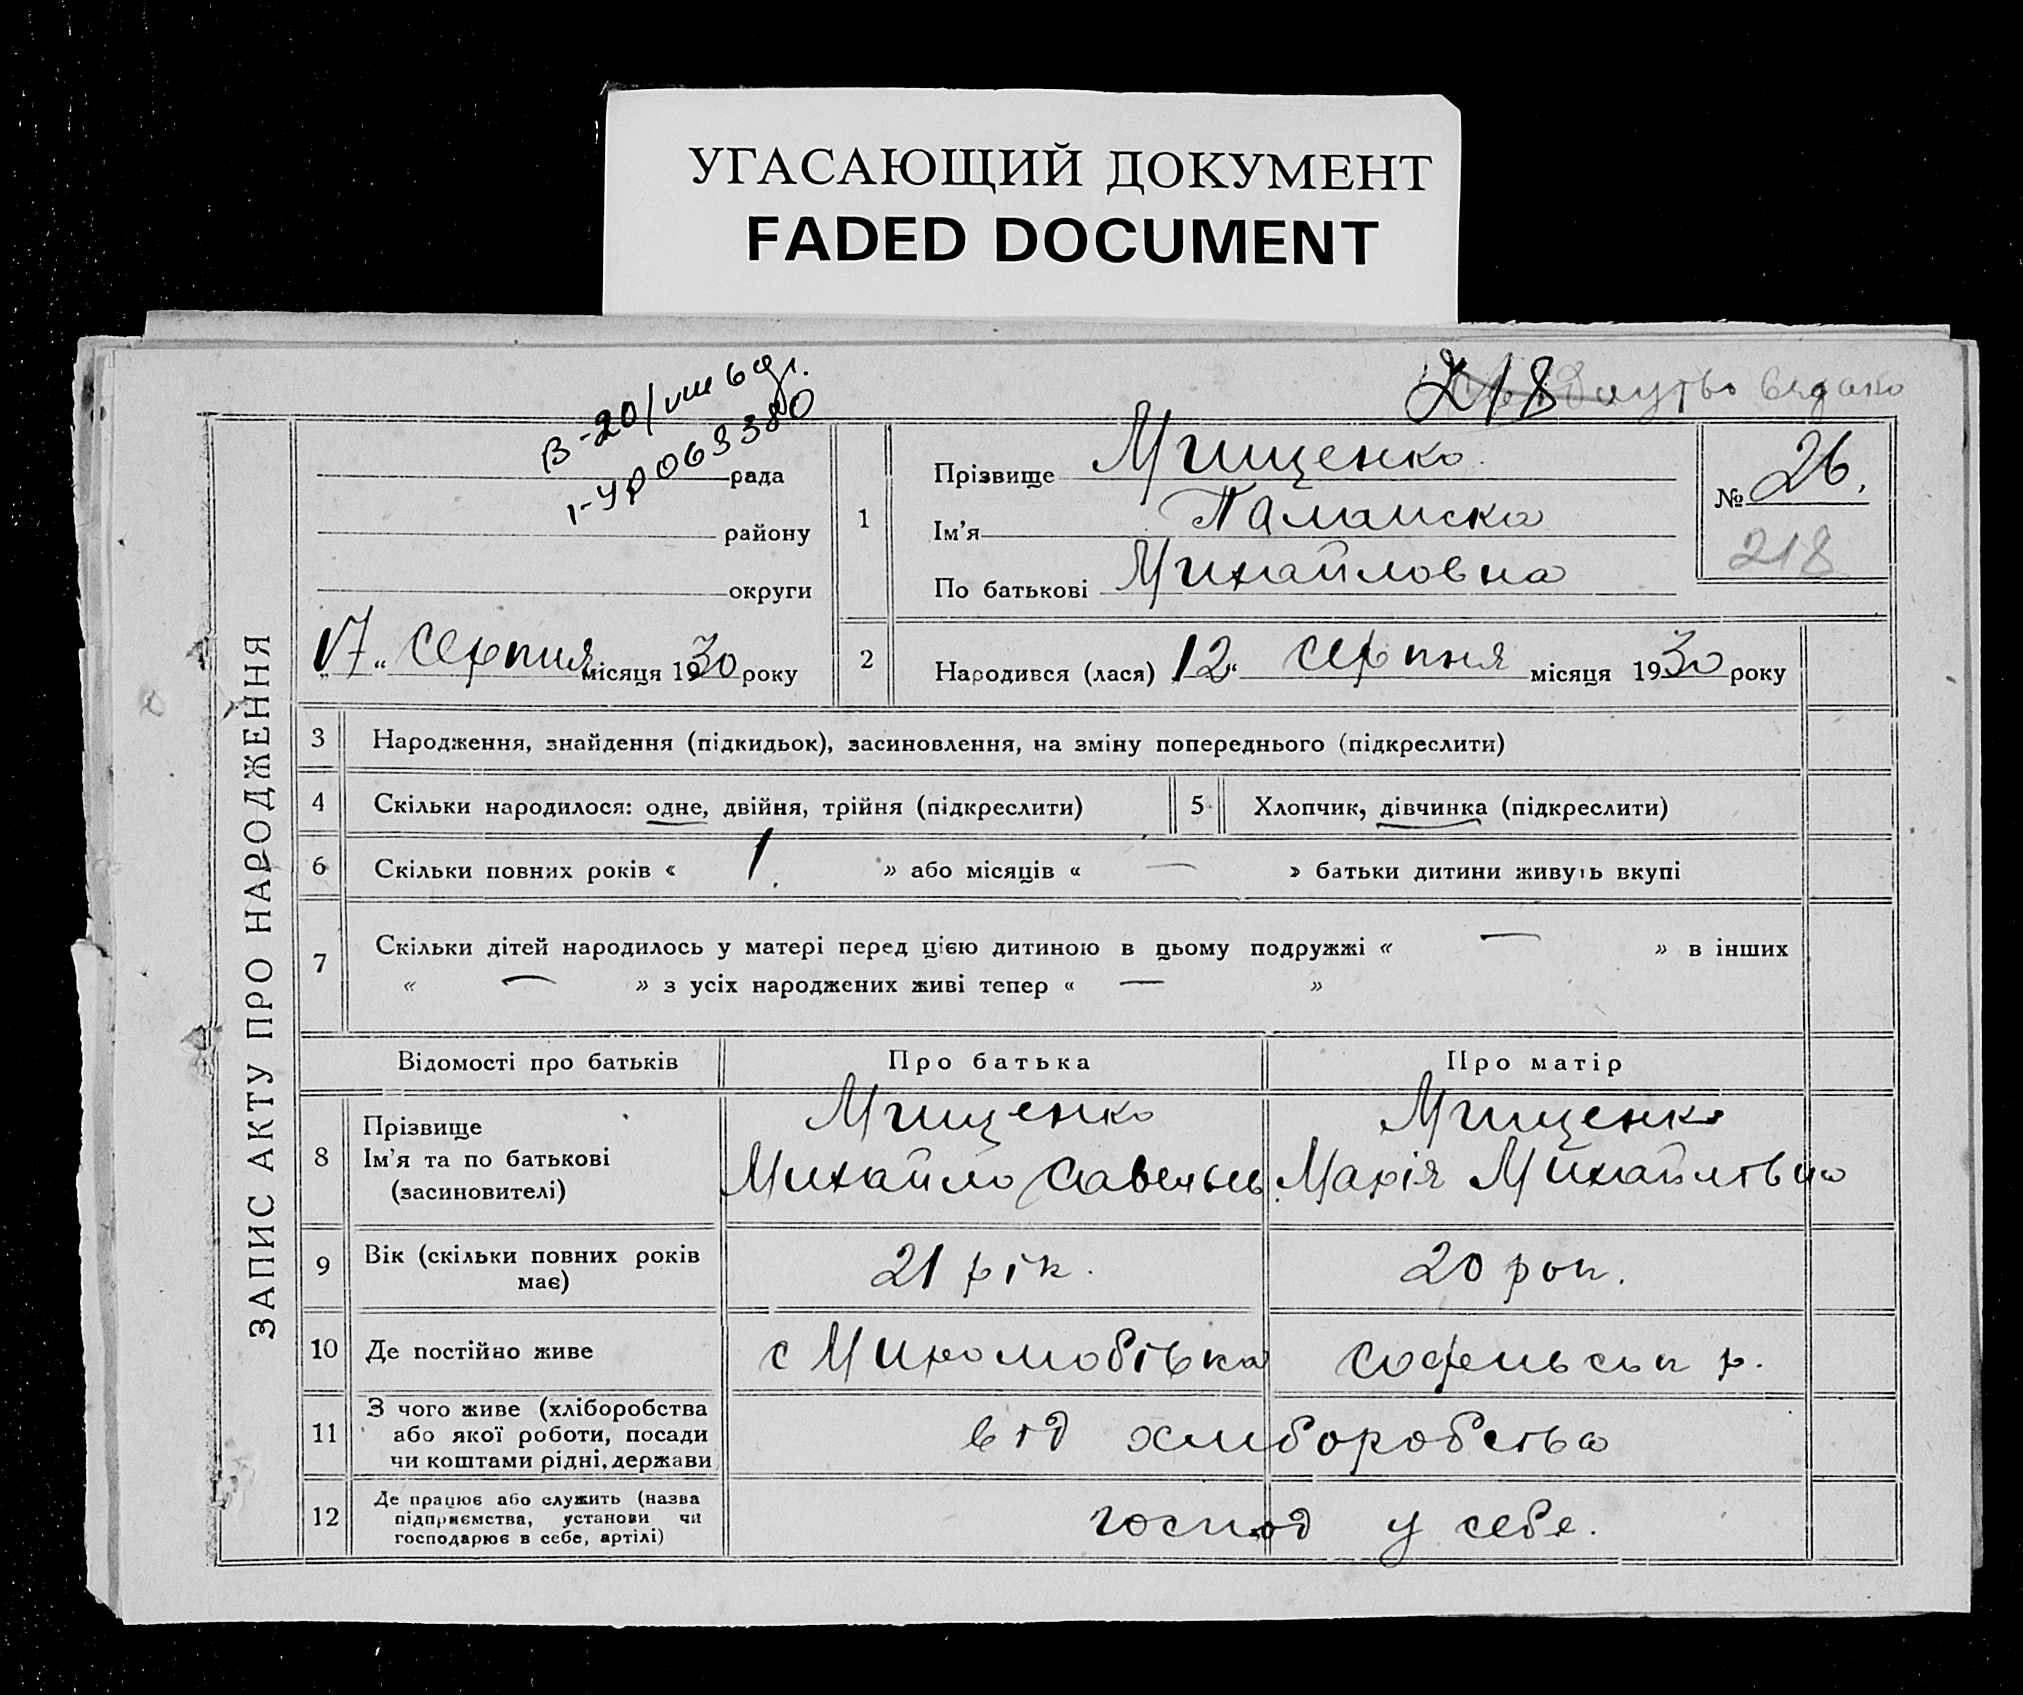 УГАСАЮЩИЙ ДОКУМЕНТ
FADED DOCUMENT
218 видано
В-20/VIII 6
1-УР 063380
рада
району
округи
„17“ Серпня місяця 1930 року
1
Прізвище Мищенко
Ім'я
По батькові Михайловна
№ 26.
218
2
Народився (лася) „12“ серпня місяця 1930 року
ЗАПИС АКТУ ПРО НАРОДЖЕННЯ
3 Народження, знайдення (підкидьок), засиновлення, на зміну попереднього (підкреслити)
4 Скільки народилося: одне, двійня, трійня (підкреслити)
5 Хлопчик, дівчинка (підкреслити)
6 Скільки повних років « 1. » або місяців « — » батьки дитини живуть вкупі
7 Скільки дітей народилось у матері перед цією дитиною в цьому подружжі « — » в інших
« — » з усіх народжених живі тепер « — »
Відомості про батьків Про батька Про матір
8
Прізвище
Ім'я та по батькові
(засиновителі)
Мищенко
Михайло Савельев
Мищенко
Марія Михайлівна
9
Вік (скільки повних років
має)
21 рік. 20 рок.
10 Де постійно живе с Миролюбівка р.
11
З чого живе (хліборобства
або якої роботи, посади
чи коштами рідні, держави
від хліборобства
12
Де працює або служить (назва
підприємства, установи чи
господарює в себе, артілі)
господ у себе.